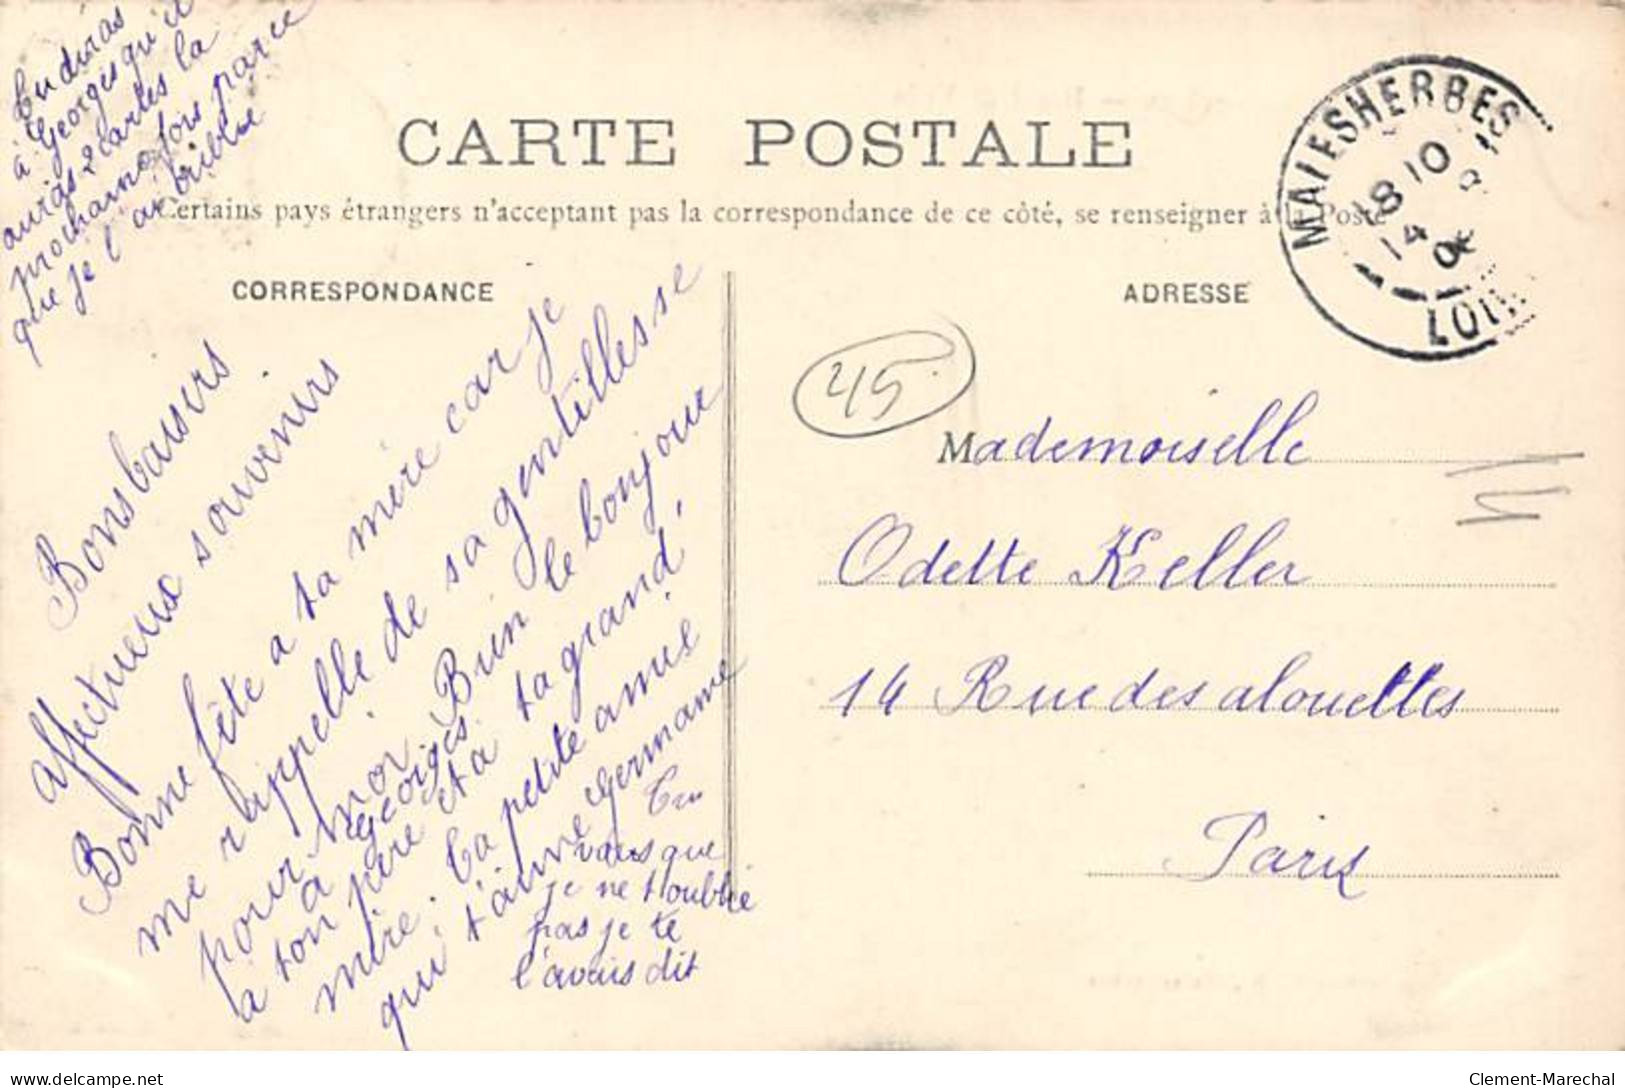 Tu diras
à Georges qu'il
auras 2 cartes la
prochaine fois parce
que je l'ai oublié
CARTE POSTALE
Certains pays étrangers n'acceptent pas la correspondance de ce côté, se renseigner à la Poste
CORRESPONDANCE
Bons baisers
affectueux souvenirs
Bonne fête a ta mère car je
me rappelle de sa gentillesse
pour moi. Bien le bonjour
à Georges
à ton père et a ta grand'
mère. Ta petite amie
qui t'aime Germaine
Tu
vois que
je ne t'oublie
pas je te
l'avais dit
ADRESSE
MALESHERBES
18 10
14
LOIR
45
Mademoiselle
Odette Keller
14 Rue des alouettes
Paris
delcampe.net
Clement-Marechal